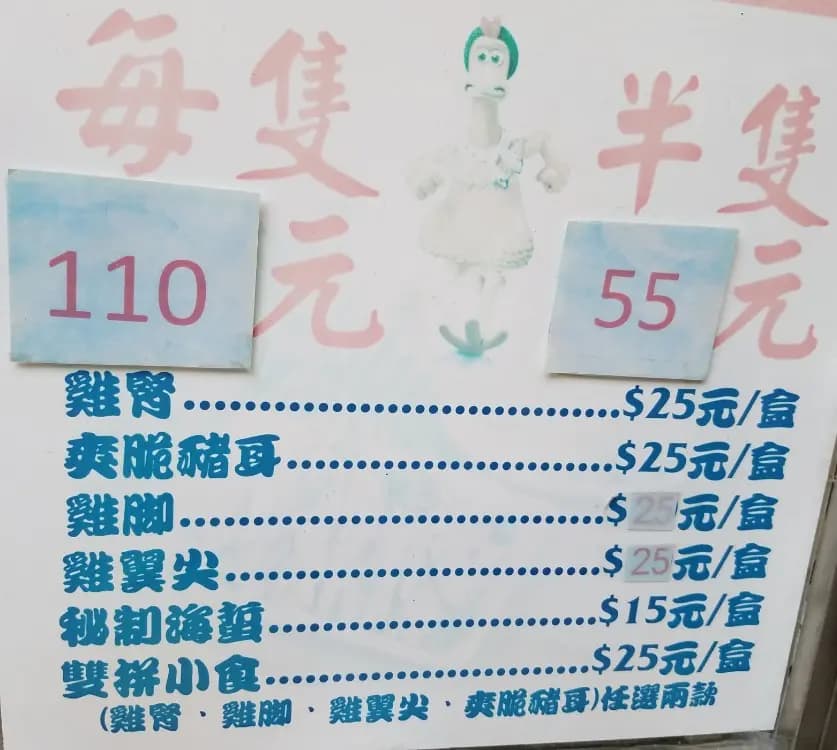 每隻 110 元
半隻 55 元
雞腎........................................$25元/盒
爽脆豬耳..............................$25元/盒
雞脚.......................................$25元/盒
雞翼尖...................................$25元/盒
秘制海蜇..............................$15元/盒
雙拼小食..............................$25元/盒
(雞腎、雞脚、雞翼尖、爽脆豬耳)任選兩款